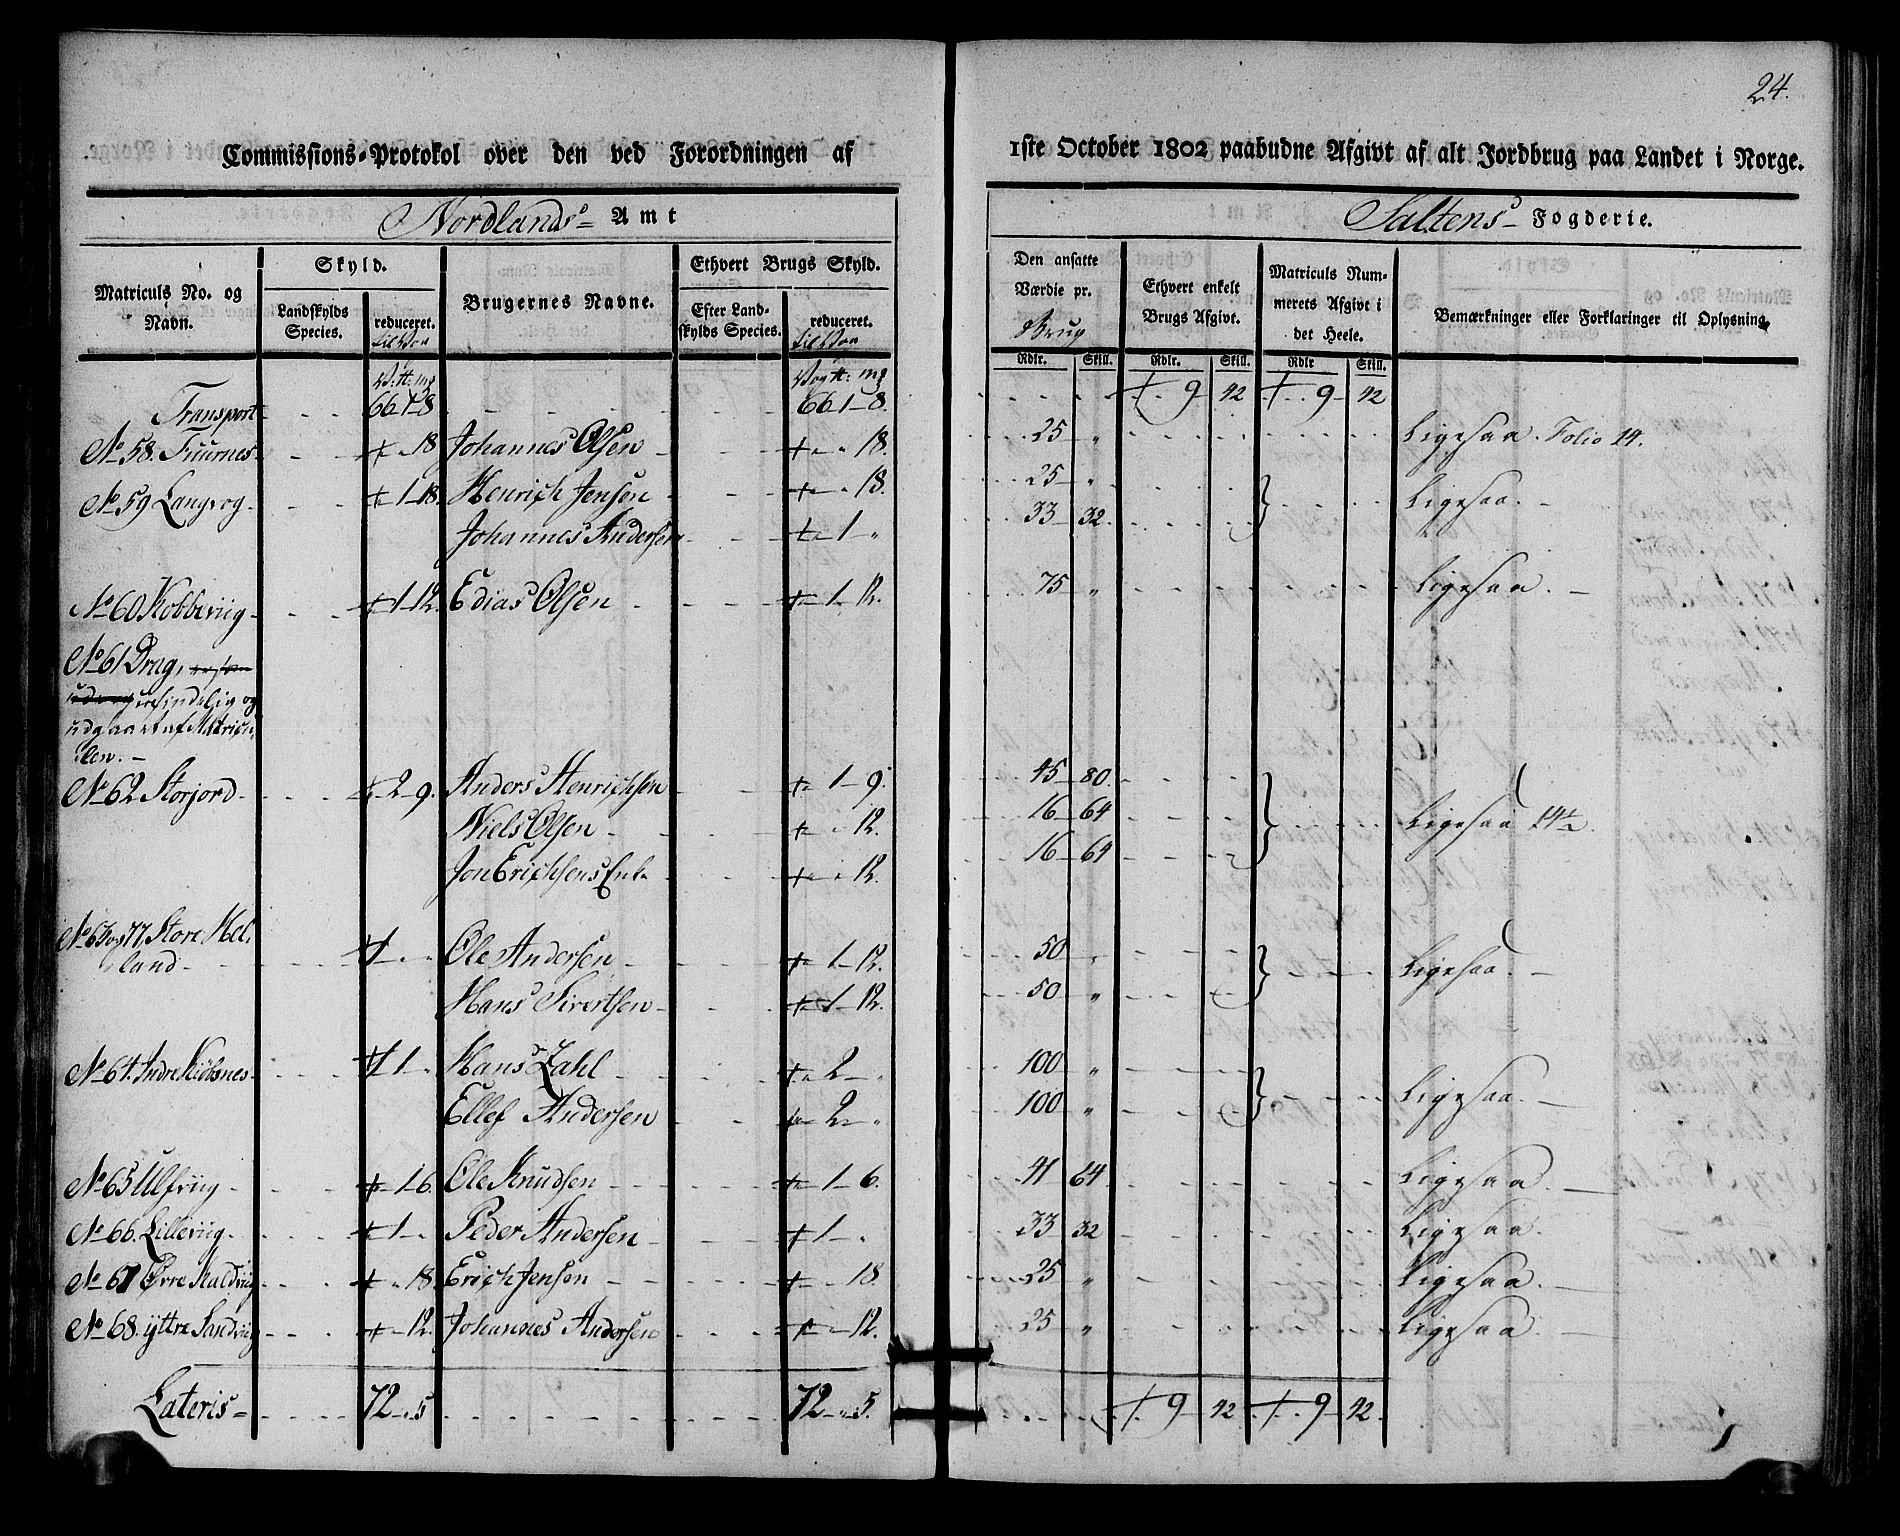 24.
Commissions-Protokol over den ved Forordningen af 1ste October 1802 paabudne Afgivt af alt Jordbrug paa Landet i Norge.
Nordlands- Amt
Saltens- Fogderie.
Matriculs No. og Navn. Skyld. Landskylds Species. reduceret. til Vaa Brugernes Navne. Ethvert Brugs Skyld. Efter Landskylds Species. reduceret. til Vaa Den ansatte Værdie pr. Brug Ethvert enkelt Brugs Afgivt. Matriculs Nummerets Afgivt i det Heele. Bemærkninger eller Forklaringer til Oplysning.
Rdlr. Skill. Rdlr. Skill. Rdlr Skill.
Transport 66 1 8 66 1 8. 9 42 9 42
No 58. Fuurnes 18 Johannes Olsen 18. 25 " Ligesaa. Folio 14.
No 59 Langvog 1 18. Henrich Jensen 18. 25 " Ligesaa.
Johannes Andersen 1 " 33 32.
No 60 Kobbeviig 1 12. Edias Olsen 1 12. 75 " Ligesaa.
No 61 Drag,
ufindelig og
udgaaet af Matricu
len.
No 62 Storjord 2 9. Anders Henrichsen 1 9. 45 80.
Niels Olsen 12. 16 64 Ligesaa 14½.
Jon Erichsens Enk. 12. 16 64
No 63 og 77. Store Hel
land 1 Ole Andersen 1 12. 50 " Ligesaa.
Hans Sivertsen 1 12. 50 "
No 64. Indre Kiöbsnes 1 Hans Zahl 2 " 100 "
Ellef Andersen 2 " 100 " Ligesaa.
No 65 Ulfviig 1 6. Ole Knudsen 1 6. 41 64 Ligesaa.
No 66. Lilleviig 1 Peder Andersen 1 33 32 Ligesaa.
No 67 Øvre Kaldviig 18. Erich Jensen 18. 25 " Ligesaa.
No 68. ÿttre Sandviig 12. Johannes Andersen 12. 25 " Ligesaa.
Lateris 72 " 5 72 " 5. 9 42 9 42.